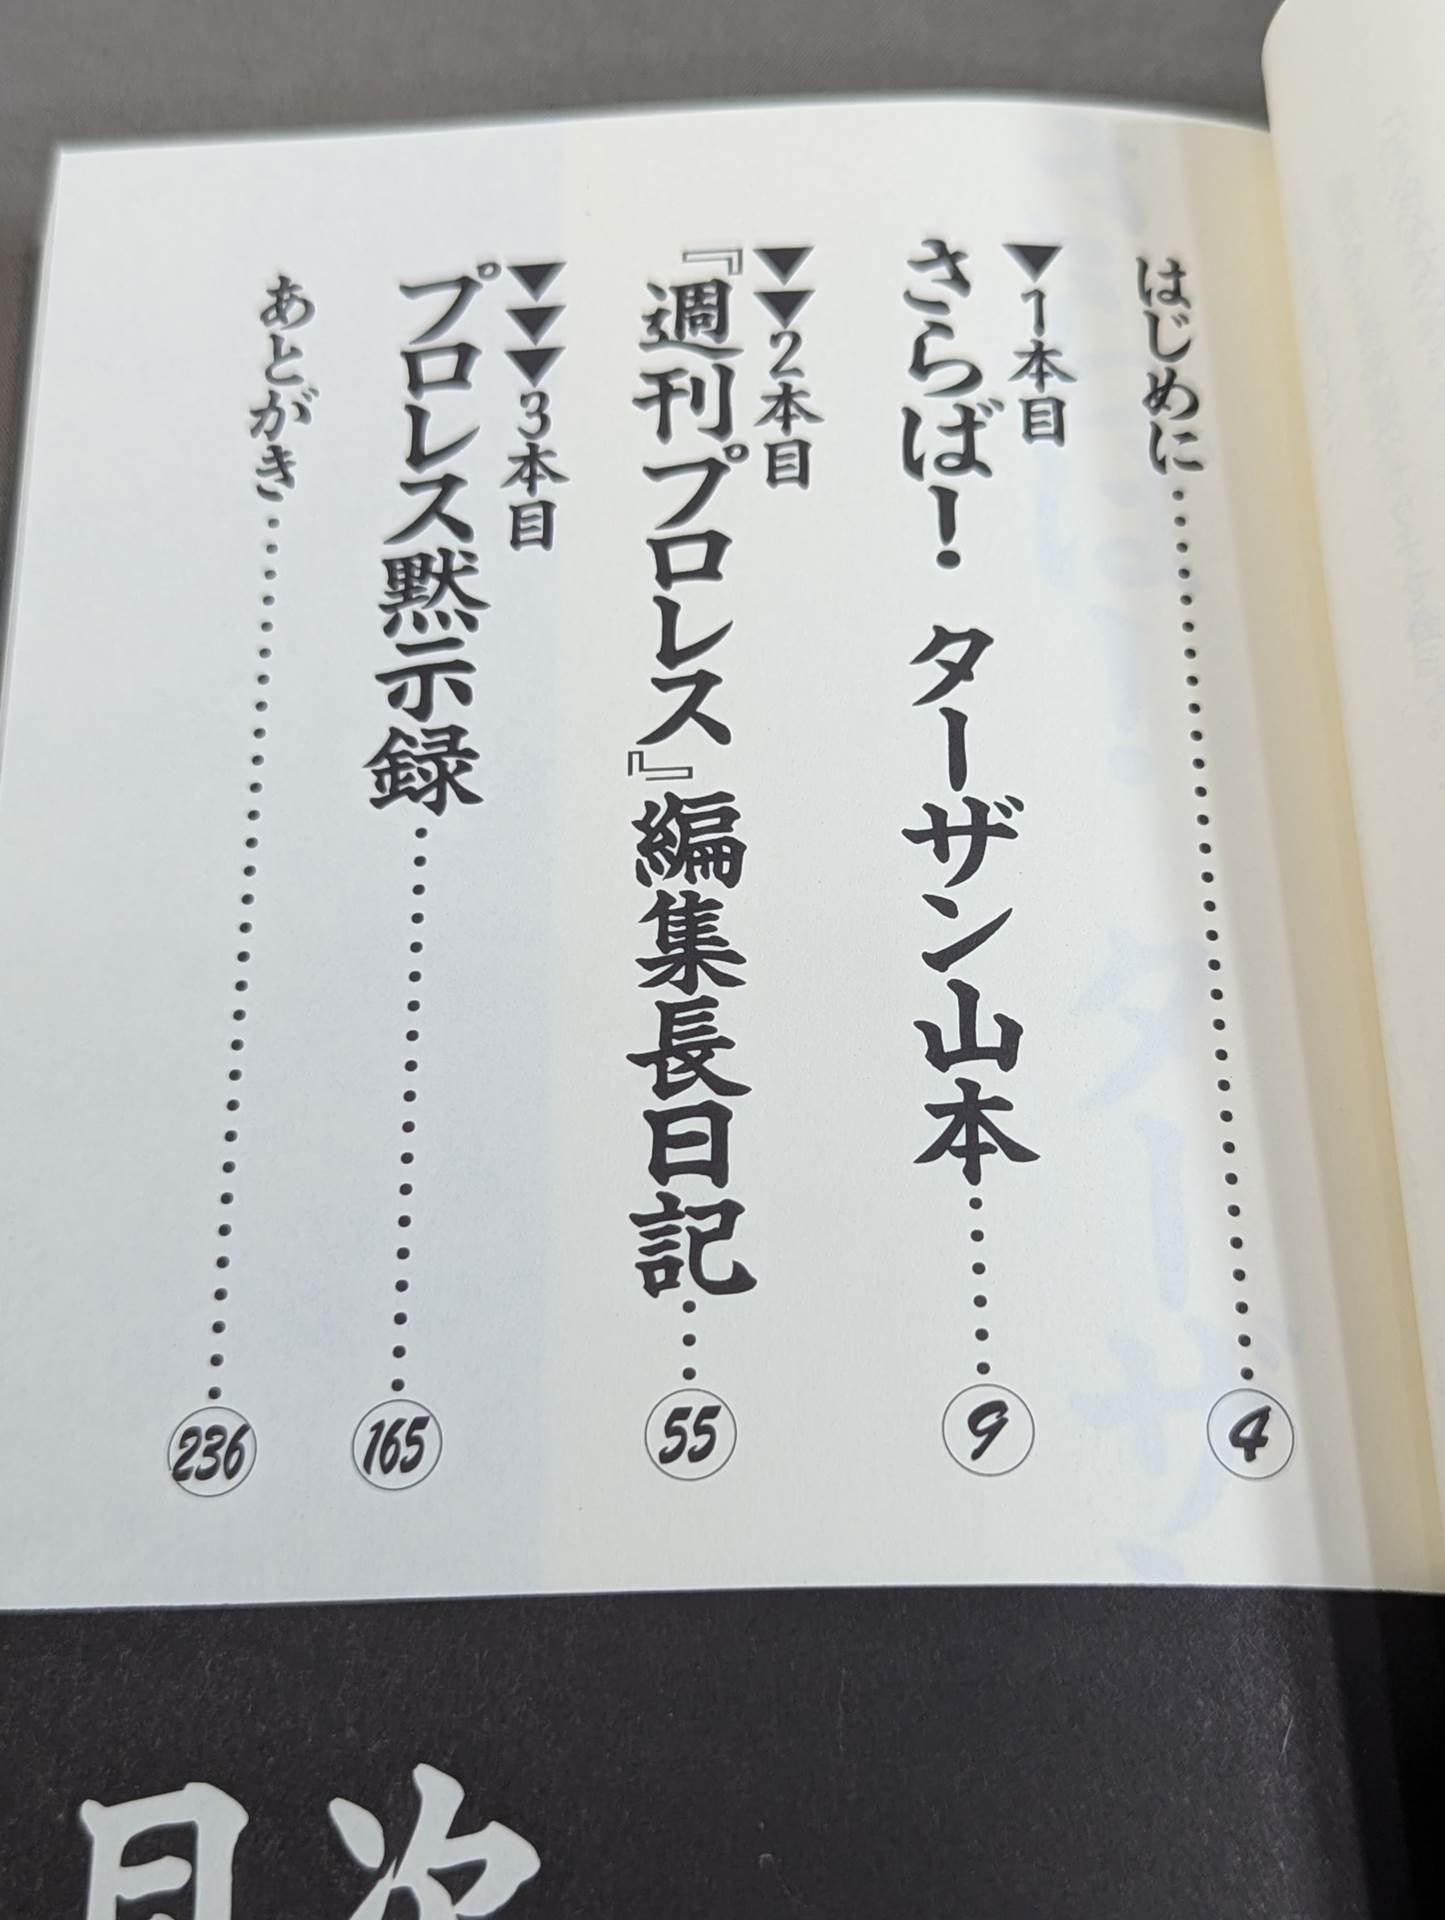 はじめに……………………………4
▼1本目
さらば！ ターザン山本……9
▼▼2本目
『週刊プロレス』編集長日記…55
▼▼▼3本目
プロレス黙示録…………………165
あとがき……………………………236
目次